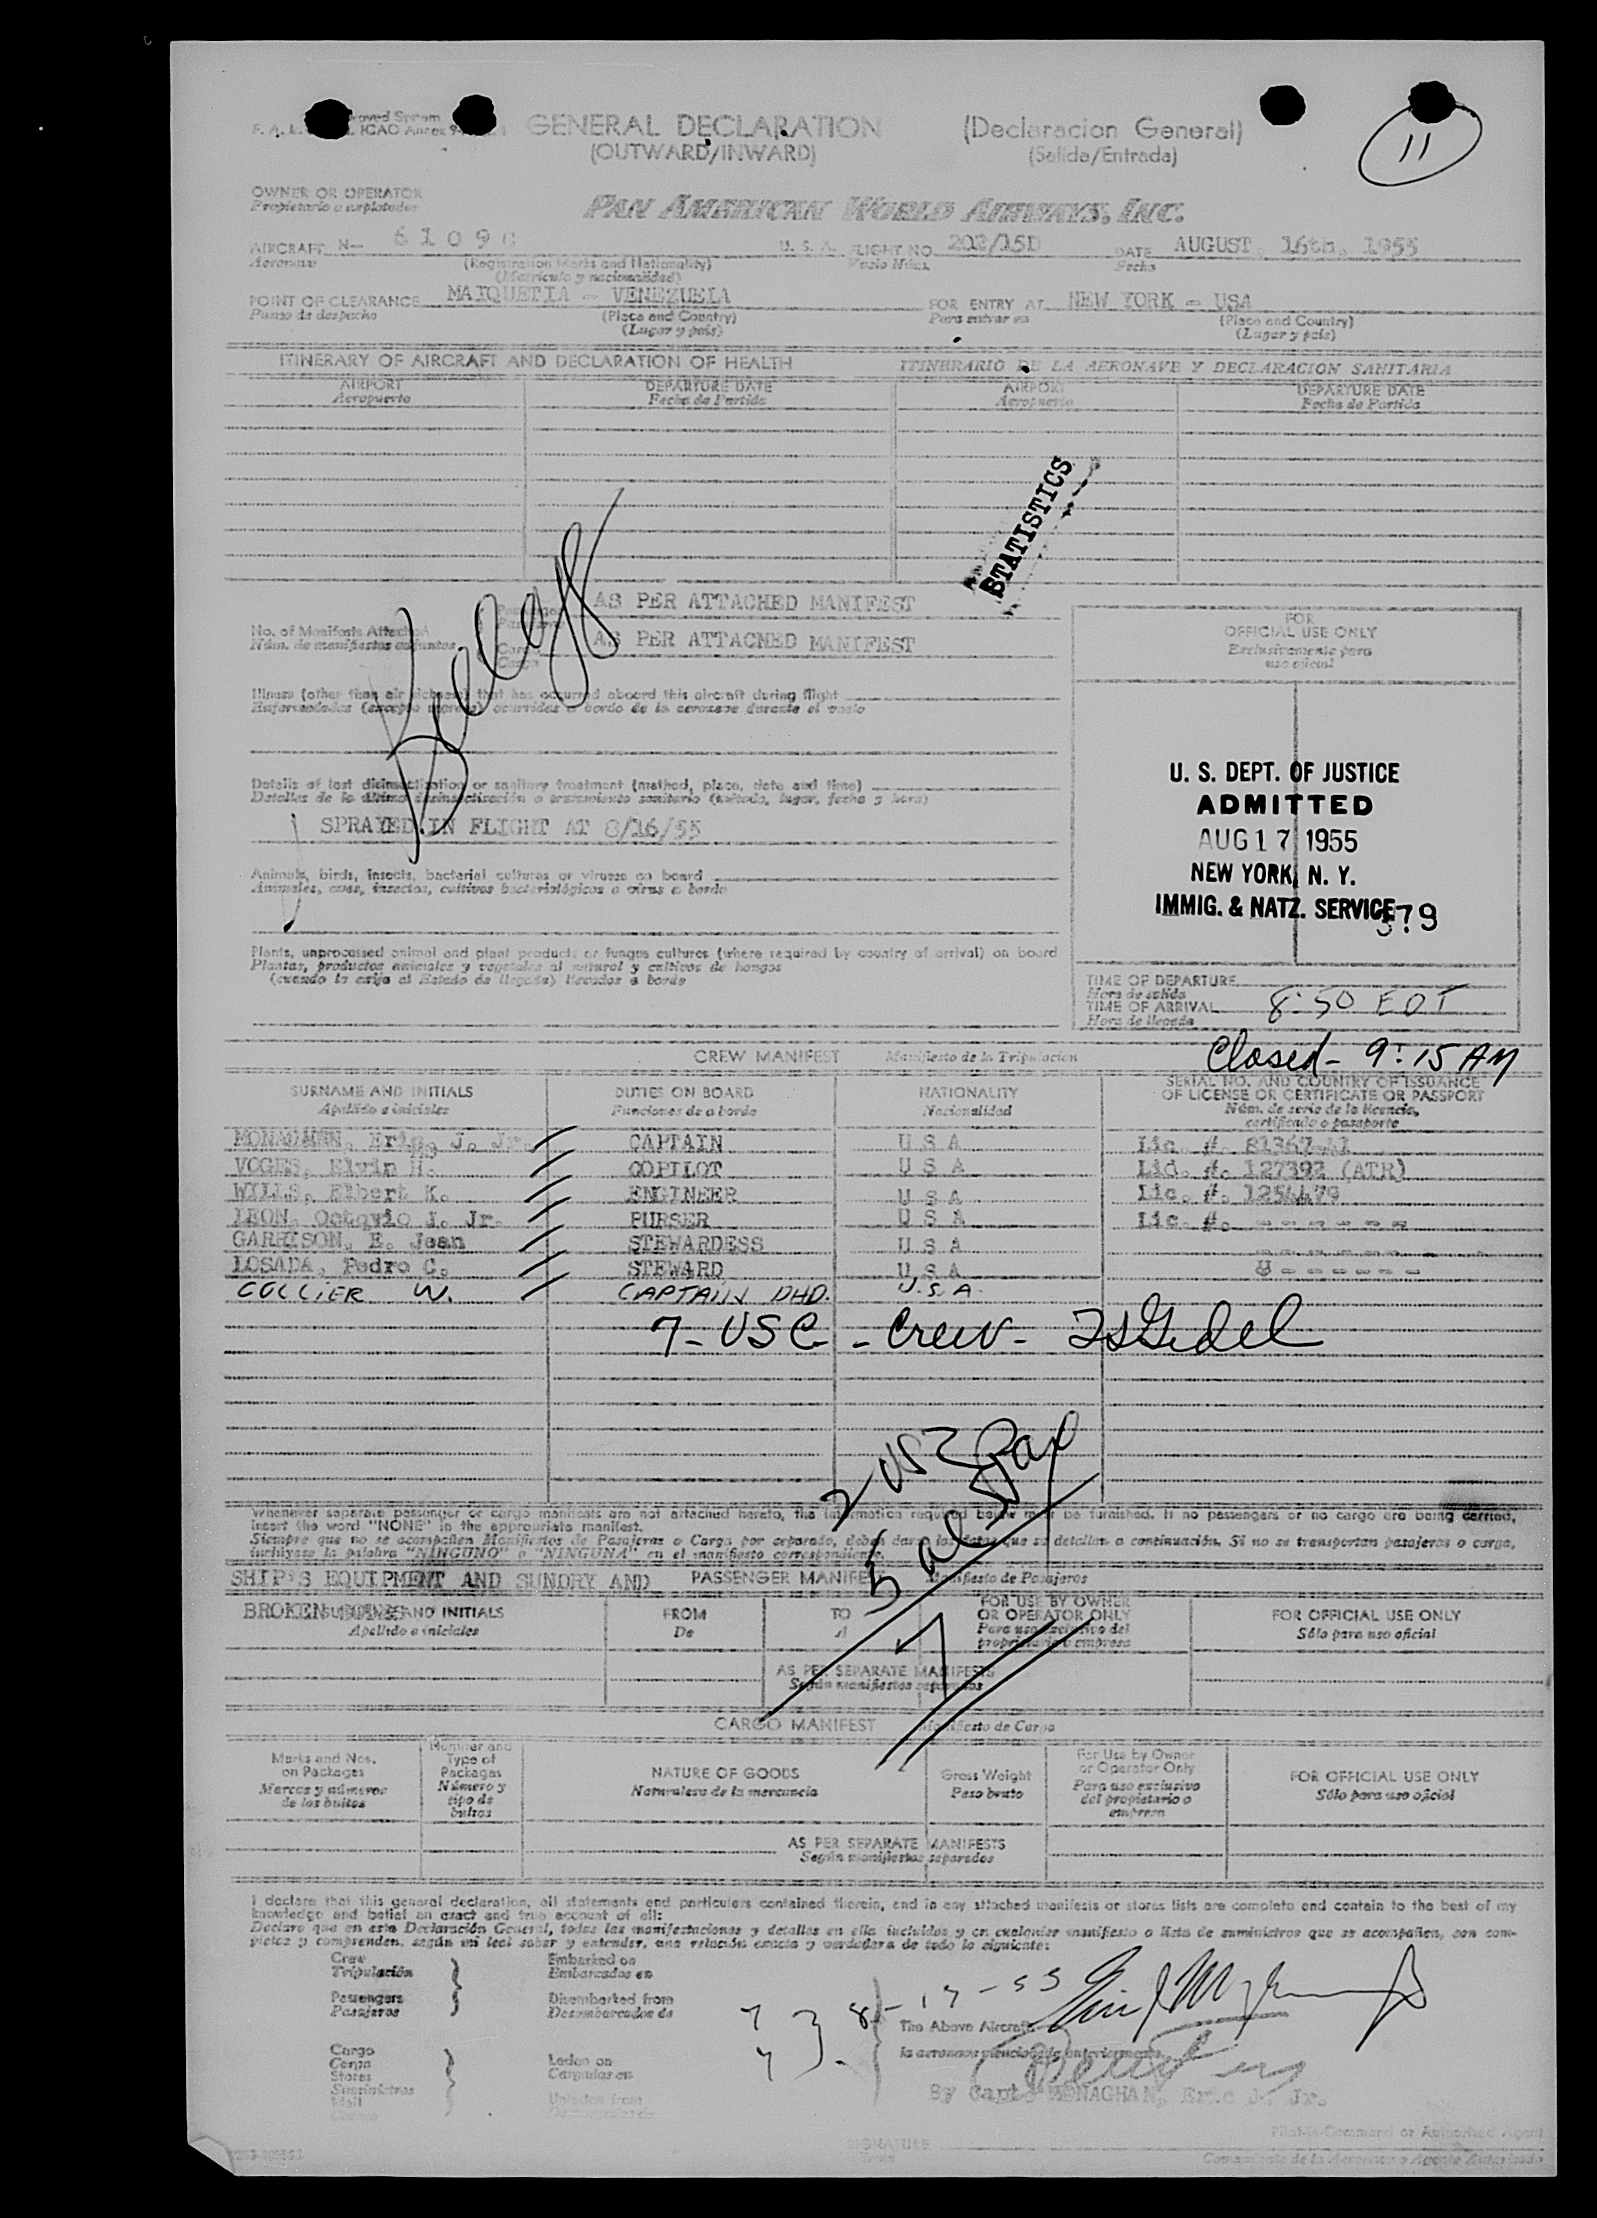 GENERAL DECLARATION (Declaracion General)
(OUTWARD/INWARD) (Salida/Entrada)
11
OWNER OR OPERATOR
Propietario o explotador
PAN AMERICAN WORLD AIRWAYS, INC.
AIRCRAFT N- 6109C U. S. A. FLIGHT NO. 202/15D DATE AUGUST, 16th, 1955
Aeronave (Registration Marks and Nationality) Vuelo Núm. Fecha
(Matrícula y nacionalidad)
POINT OF CLEARANCE MAIQUETIA - VENEZUELA FOR ENTRY AT NEW YORK - USA
Punto de despacho (Place and Country) Para entrar en (Place and Country)
(Lugar y país) (Lugar y país)
ITINERARY OF AIRCRAFT AND DECLARATION OF HEALTH ITINERARIO DE LA AERONAVE Y DECLARACION SANITARIA
AIRPORT DEPARTURE DATE AIRPORT DEPARTURE DATE
Aeropuerto Fecha de Partida Aeropuerto Fecha de Partida
STATISTICS
AS PER ATTACHED MANIFEST
No. of Manifests Attached
Núm. de manifiestos adjuntos
AS PER ATTACHED MANIFEST
FOR
OFFICIAL USE ONLY
Exclusivamente para
uso oficial
Illness (other than air sickness) that has occurred aboard this aircraft during flight
Enfermedades (excepto mareos) ocurridas a bordo de la aeronave durante el vuelo
Details of last disinsectization or sanitary treatment (method, place, date and time)
Detalles de la última desinsectización o tratamiento sanitario (método, lugar, fecha y hora)
SPRAYED IN FLIGHT AT 8/16/55
U. S. DEPT. OF JUSTICE
ADMITTED
AUG 17 1955
NEW YORK, N. Y.
IMMIG. & NATZ. SERVICE 579
Animals, birds, insects, bacterial cultures or viruses on board
Animales, aves, insectos, cultivos bacteriológicos o virus a bordo
Plants, unprocessed animal and plant products or fungus cultures (where required by country of arrival) on board
Plantas, productos animales y vegetales al natural y cultivos de hongos
(cuando lo exija el Estado de llegada) llevados a bordo
TIME OF DEPARTURE
Hora de salida
TIME OF ARRIVAL 8:50 EDT
Hora de llegada
Closed - 9:15 AM
CREW MANIFEST Manifiesto de la Tripulacion
SURNAME AND INITIALS DUTIES ON BOARD NATIONALITY SERIAL NO. AND COUNTRY OF ISSUANCE
OF LICENSE OR CERTIFICATE OR PASSPORT
Apellido e iniciales Funciones de a bordo Nacionalidad Núm. de serie de la licencia,
certificado o pasaporte
J. Jr. CAPTAIN U S A Lic. #.
VOGES, Elvin H. COPILOT U S A Lic. #. 127392 (ATR)
WILLS, Elbert K. ENGINEER U S A Lic. #. 1254479
LEON, Octavio J. Jr. PURSER U S A Lic. #. - - - - - -
GARRISON, E. Jean STEWARDESS U S A - - - - - -
LOSADA, Pedro C. STEWARD U S A - - - - - -
COLLIER W. CAPTAIN DHD. U.S.A.
7 - USC - Crew -
2 USC
5 als Pax
7
Whenever separate passenger or cargo manifests are not attached hereto, the information required below must be furnished. If no passengers or no cargo are being carried,
insert the word "NONE" in the appropriate manifest.
Siempre que no se acompañen Manifiestos de Pasajeros o Carga por separado, deben darse los datos que se detallan a continuación. Si no se transportan pasajeros o carga,
inclúyase la palabra "NINGUNO" o "NINGUNA" en el manifiesto correspondiente.
SHIP'S EQUIPMENT AND SUNDRY AND PASSENGER MANIFEST Manifiesto de Pasajeros
BROKEN
SURNAME AND INITIALS FROM TO FOR USE BY OWNER OR OPERATOR ONLY FOR OFFICIAL USE ONLY
Apellido e iniciales De A Para uso exclusivo del propietario o empresa Sólo para uso oficial
AS PER SEPARATE MANIFESTS
Según manifiestos separados
CARGO MANIFEST Manifiesto de Carga
Marks and Nos. on Packages Number and Type of Packages NATURE OF GOODS Gross Weight For Use by Owner or Operator Only FOR OFFICIAL USE ONLY
Marcas y números de los bultos Número y tipo de bultos Naturaleza de la mercancía Peso bruto Para uso exclusivo del propietario o empresa Sólo para uso oficial
AS PER SEPARATE MANIFESTS
Según manifiestos separados
I declare that this general declaration, all statements and particulars contained therein, and in any attached manifests or stores lists are complete and contain to the best of my
knowledge and belief an exact and true account of all:
Declaro que en esta Declaración General, todas las manifestaciones y detalles en ella incluidos y en cualquier manifiesto o lista de suministros que se acompañen, son com-
pletos y comprenden, según mi leal saber y entender, una relación exacta y verdadera de todo lo siguiente:
Crew Embarked on
Tripulación Embarcados en
Passengers Disembarked from
Pasajeros Desembarcados de
8-17-55
The Above Aircraft
Cargo Laden on
Carga Cargados en
Stores
Suministros
Mail Unladen from
By Capt. MONAGHAN, Eric J. Jr.
Pilot-in-Command or Authorized Agent
SIGNATURE
Comandante de la Aeronave o Agente Autorizado